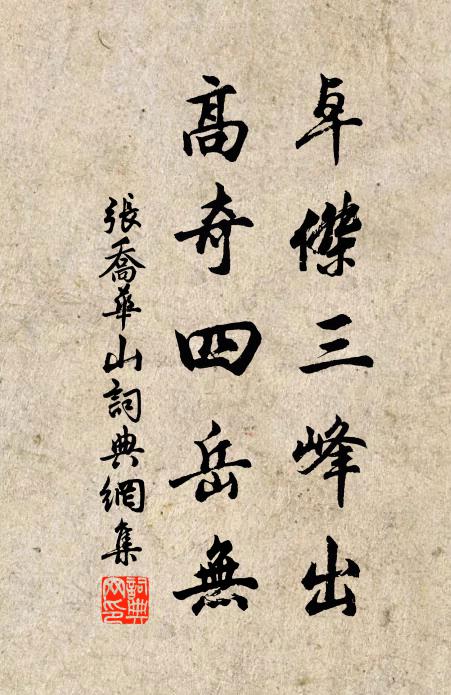 卓傑三峰出
高奇四岳無
張喬華山詞典網集
詞典網印